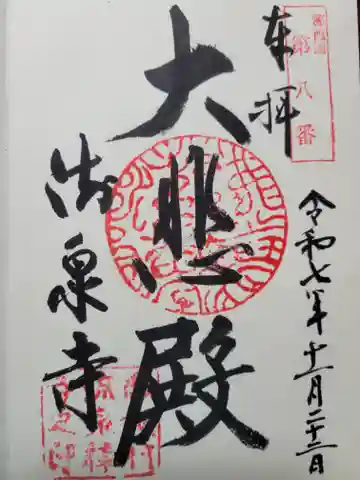 第八番
奉拝
令和七年十一月二十二日
大悲殿
御泉寺